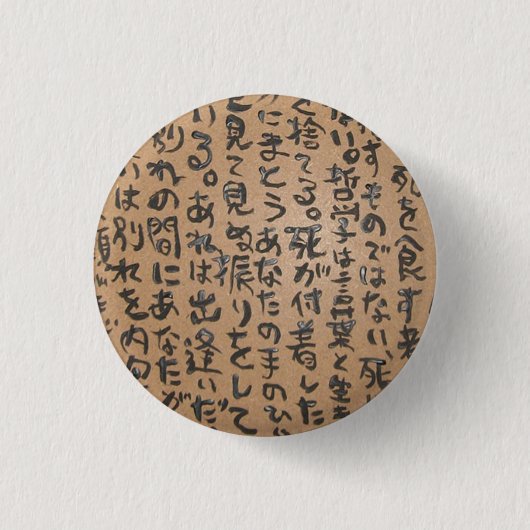 死を食す者
すものではない、死
い。哲学は言葉と生
捨てる。死が付着した
にまとうあなたの手のひ
見て見ぬ振りをして
る。あれは出逢いだ
別れの間にあなたが
は別れを内包